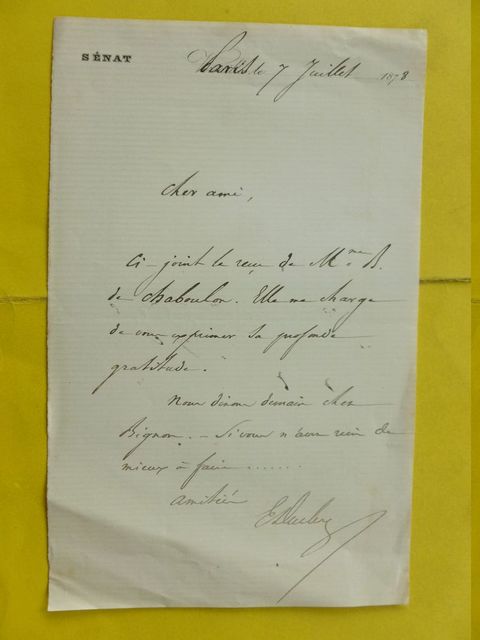 SÉNAT
Paris le 7 Juillet 1878
Cher ami,
Ci-joint le reçu de Mme B.
de Chaboulon. Elle me charge
de vous exprimer sa profonde
gratitude.
Nous dinons demain chez
Bignon. - Si vous n'avez rien de
mieux à faire ......
amitiés